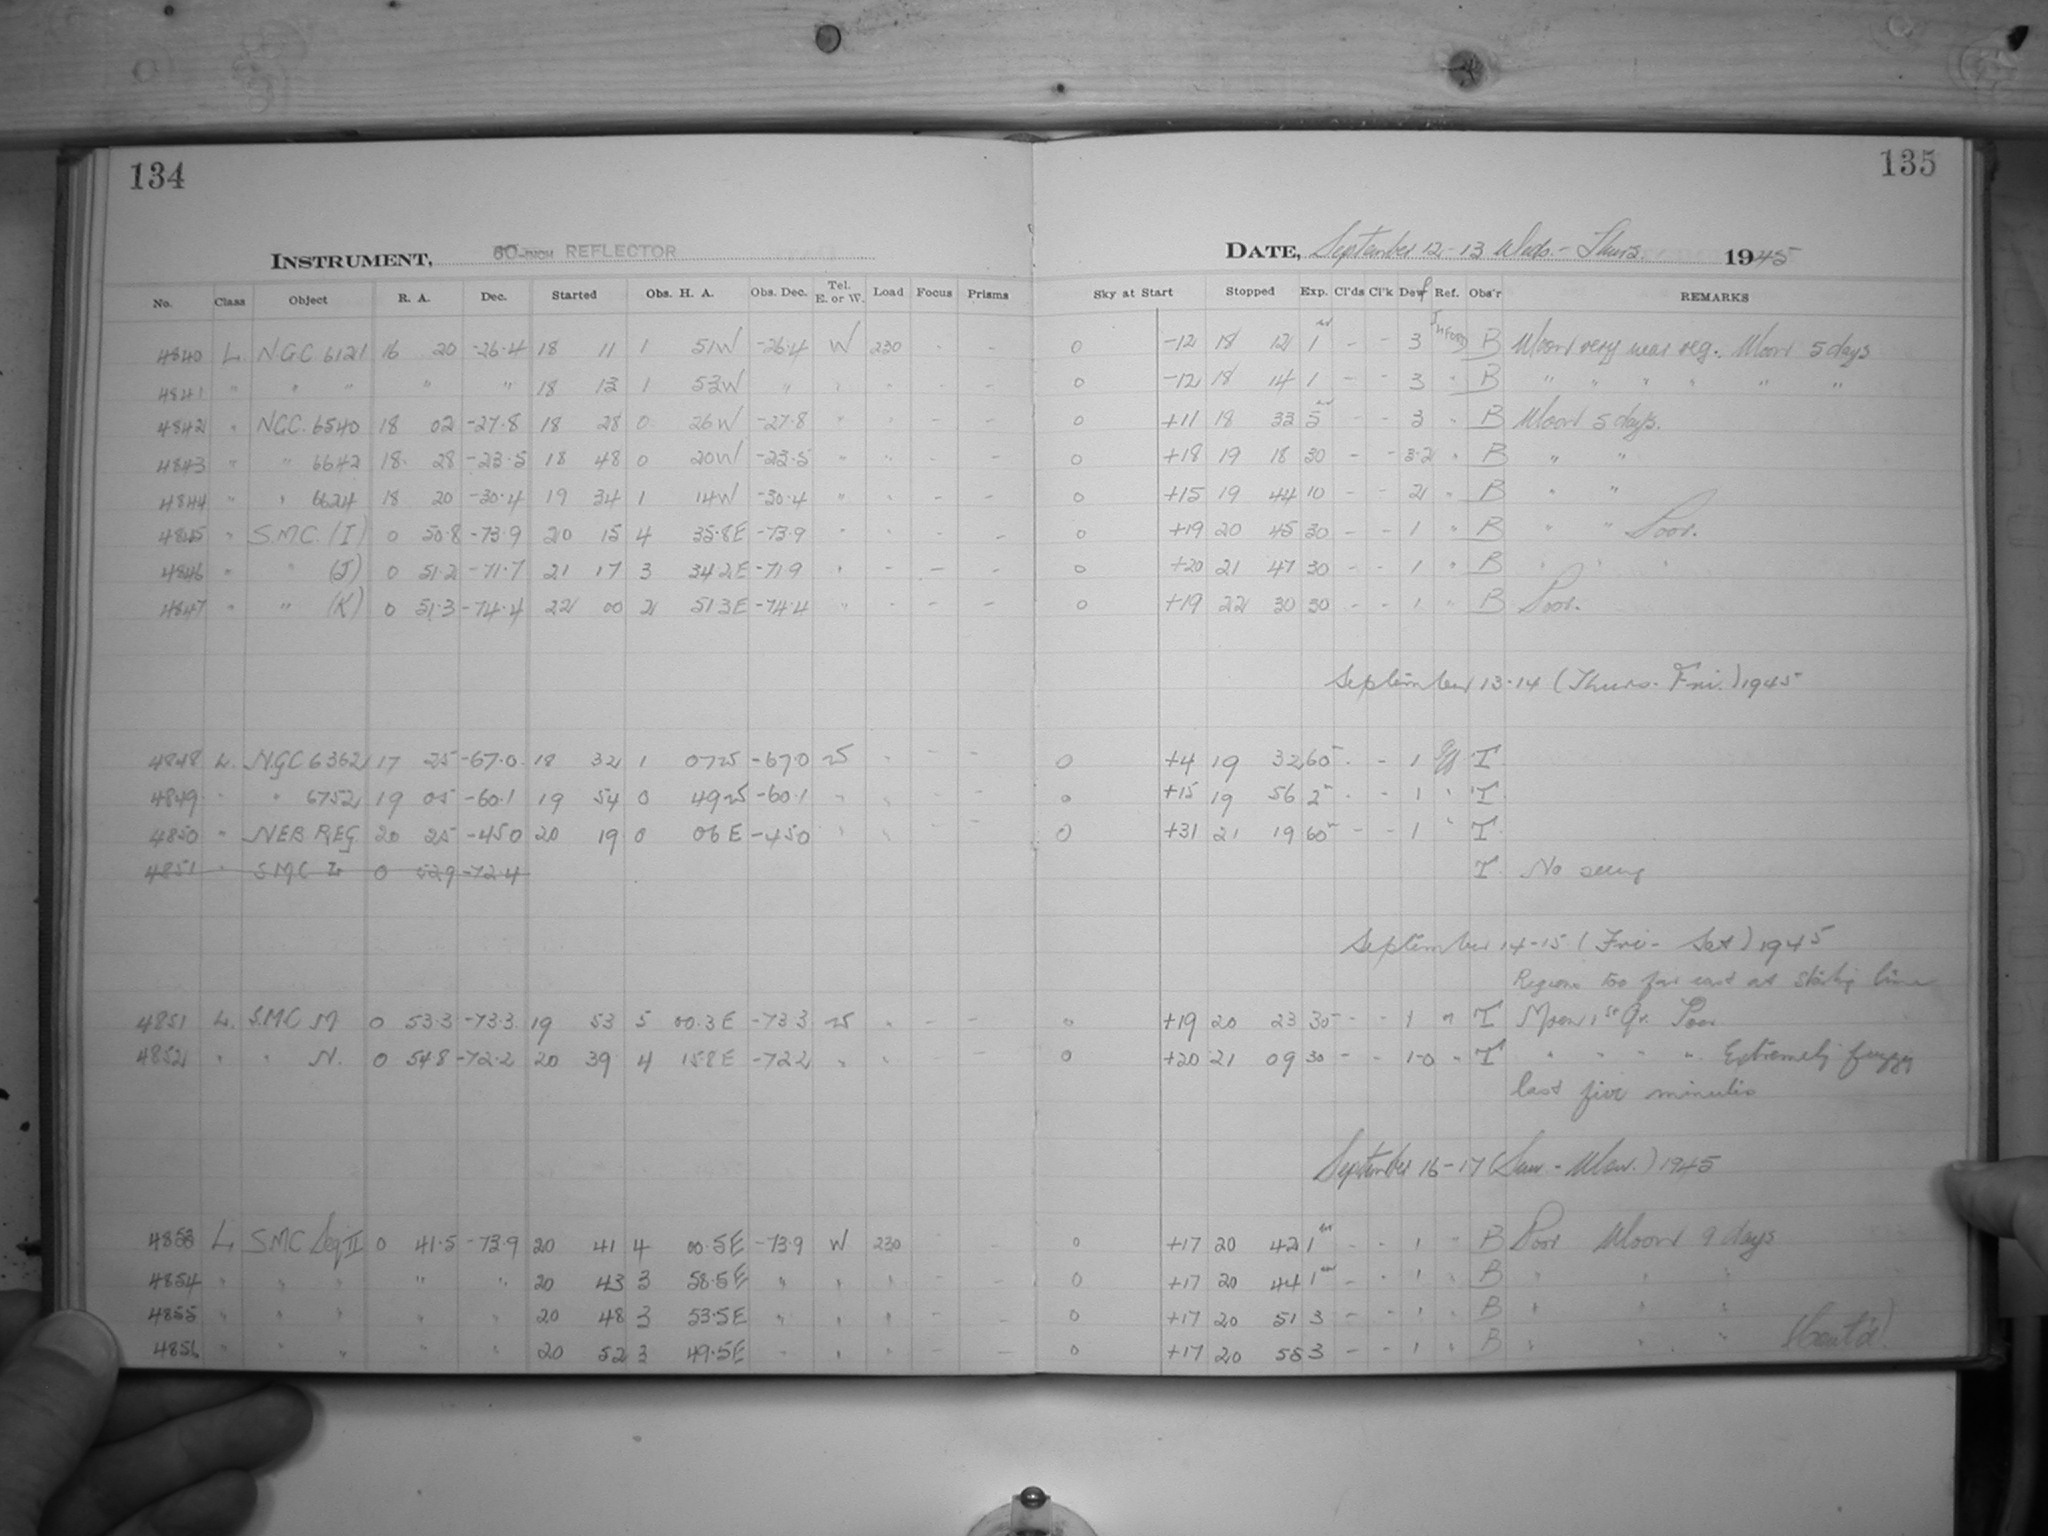 134
135
INSTRUMENT, 60-INCH REFLECTOR
DATE, September 12-13 Weds.- Thurs. 1945
No. Class Object R. A. Dec. Started Obs. H. A. Obs. Dec. Tel. E. or W. Load Focus Prisms Sky at Start Stopped Exp. Cl'ds Cl'k Dew Ref. Obs'r REMARKS
4840 L NGC 6121 16 20 -26.4 18 11 1 51W -26.4 W 230 - - 0 -12 18 12 1 - - 3 B Moon very near reg. Moon 5 days
4841 " " " " " 18 13 1 53W " " " - - 0 -12 18 14 1 - - 3 " B " " " " " "
4842 " NGC. 6540 18 02 -27.8 18 28 0 26W -27.8 " " - - 0 +11 18 33 5 - - 3 " B Moon 5 days.
4843 " " 6642 18 28 -23.5 18 48 0 20W -23.5 " " - - 0 +18 19 18 30 - - 3-2 " B " "
4844 " " 6624 18 20 -30.4 19 34 1 14W -30.4 " " - - 0 +15 19 44 10 - - 2 " B " "
4845 " S.M.C. (I) 0 50.8 -73.9 20 15 4 35.8E -73.9 " " - - 0 +19 20 45 30 - - 1 " B " " Poor.
4846 " " (J) 0 51.2 -71.7 21 17 3 34.2E -71.9 " - - - 0 +20 21 47 30 - - 1 " B " " "
4847 " " (K) 0 51.3 -74.4 22 00 2 51.3E -74.4 " " - - 0 +19 22 30 30 - - 1 " B Poor.
September 13-14 (Thurs.-Fri.) 1945
4848 L. NGC 6362 17 25 -67.0 18 32 1 07W -67.0 W " - - 0 +4 19 32 60 - - 1 T
4849 " " 6752 19 05 -60.1 19 54 0 49W -60.1 " " - - 0 +15 19 56 2 - - 1 " T
4850 " NEB REG 20 25 -45.0 20 19 0 06E -45.0 " " - - 0 +31 21 19 60 - - 1 " T
4851 " SMC L 0 52.9 -72.4 T. No seeing
September 14-15 (Fri- Sat) 1945
Regions too far east at starting time
4851 L. S.M.C M 0 53.3 -73.3 19 53 5 00.3E -73.3 W " - - 0 +19 20 23 30 - - 1 " T Moon 1st Qr. Poor
4852 " " N. 0 54.8 -72.2 20 39 4 15.8E -72.2 " " - - 0 +20 21 09 30 - - 1-0 " T " " " " Extremely fuzzy
last five minutes
September 16-17 (Sun.-Mon.) 1945
4853 L SMC Seq II 0 41.5 -73.9 20 41 4 00.5E -73.9 W 230 - 0 +17 20 42 1 - - 1 " B Poor Moon 9 days
4854 " " " " " 20 43 3 58.5E " " " - - 0 +17 20 44 1 - - 1 " B " " "
4855 " " " " " 20 48 3 53.5E " " " - - 0 +17 20 51 3 - - 1 " B " " "
4856 " " " " " 20 52 3 49.5E " " " - - 0 +17 20 55 3 - - 1 " B " " " (Cont'd)